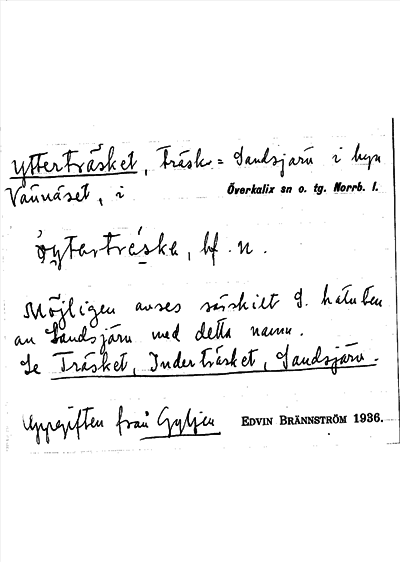 Ytterträsket, träsk = Sandsjärv i byn
Vännäset, i Överkalix sn o. tg. Norrb. l.
bf. n.
Möjligen avses särskilt S. halvten
av Sandsjärv med detta namn.
Se Träsket, Inderträsket, Sandsjärv.
Uppgiften från Gyljen EDVIN BRÄNNSTRÖM 1936.